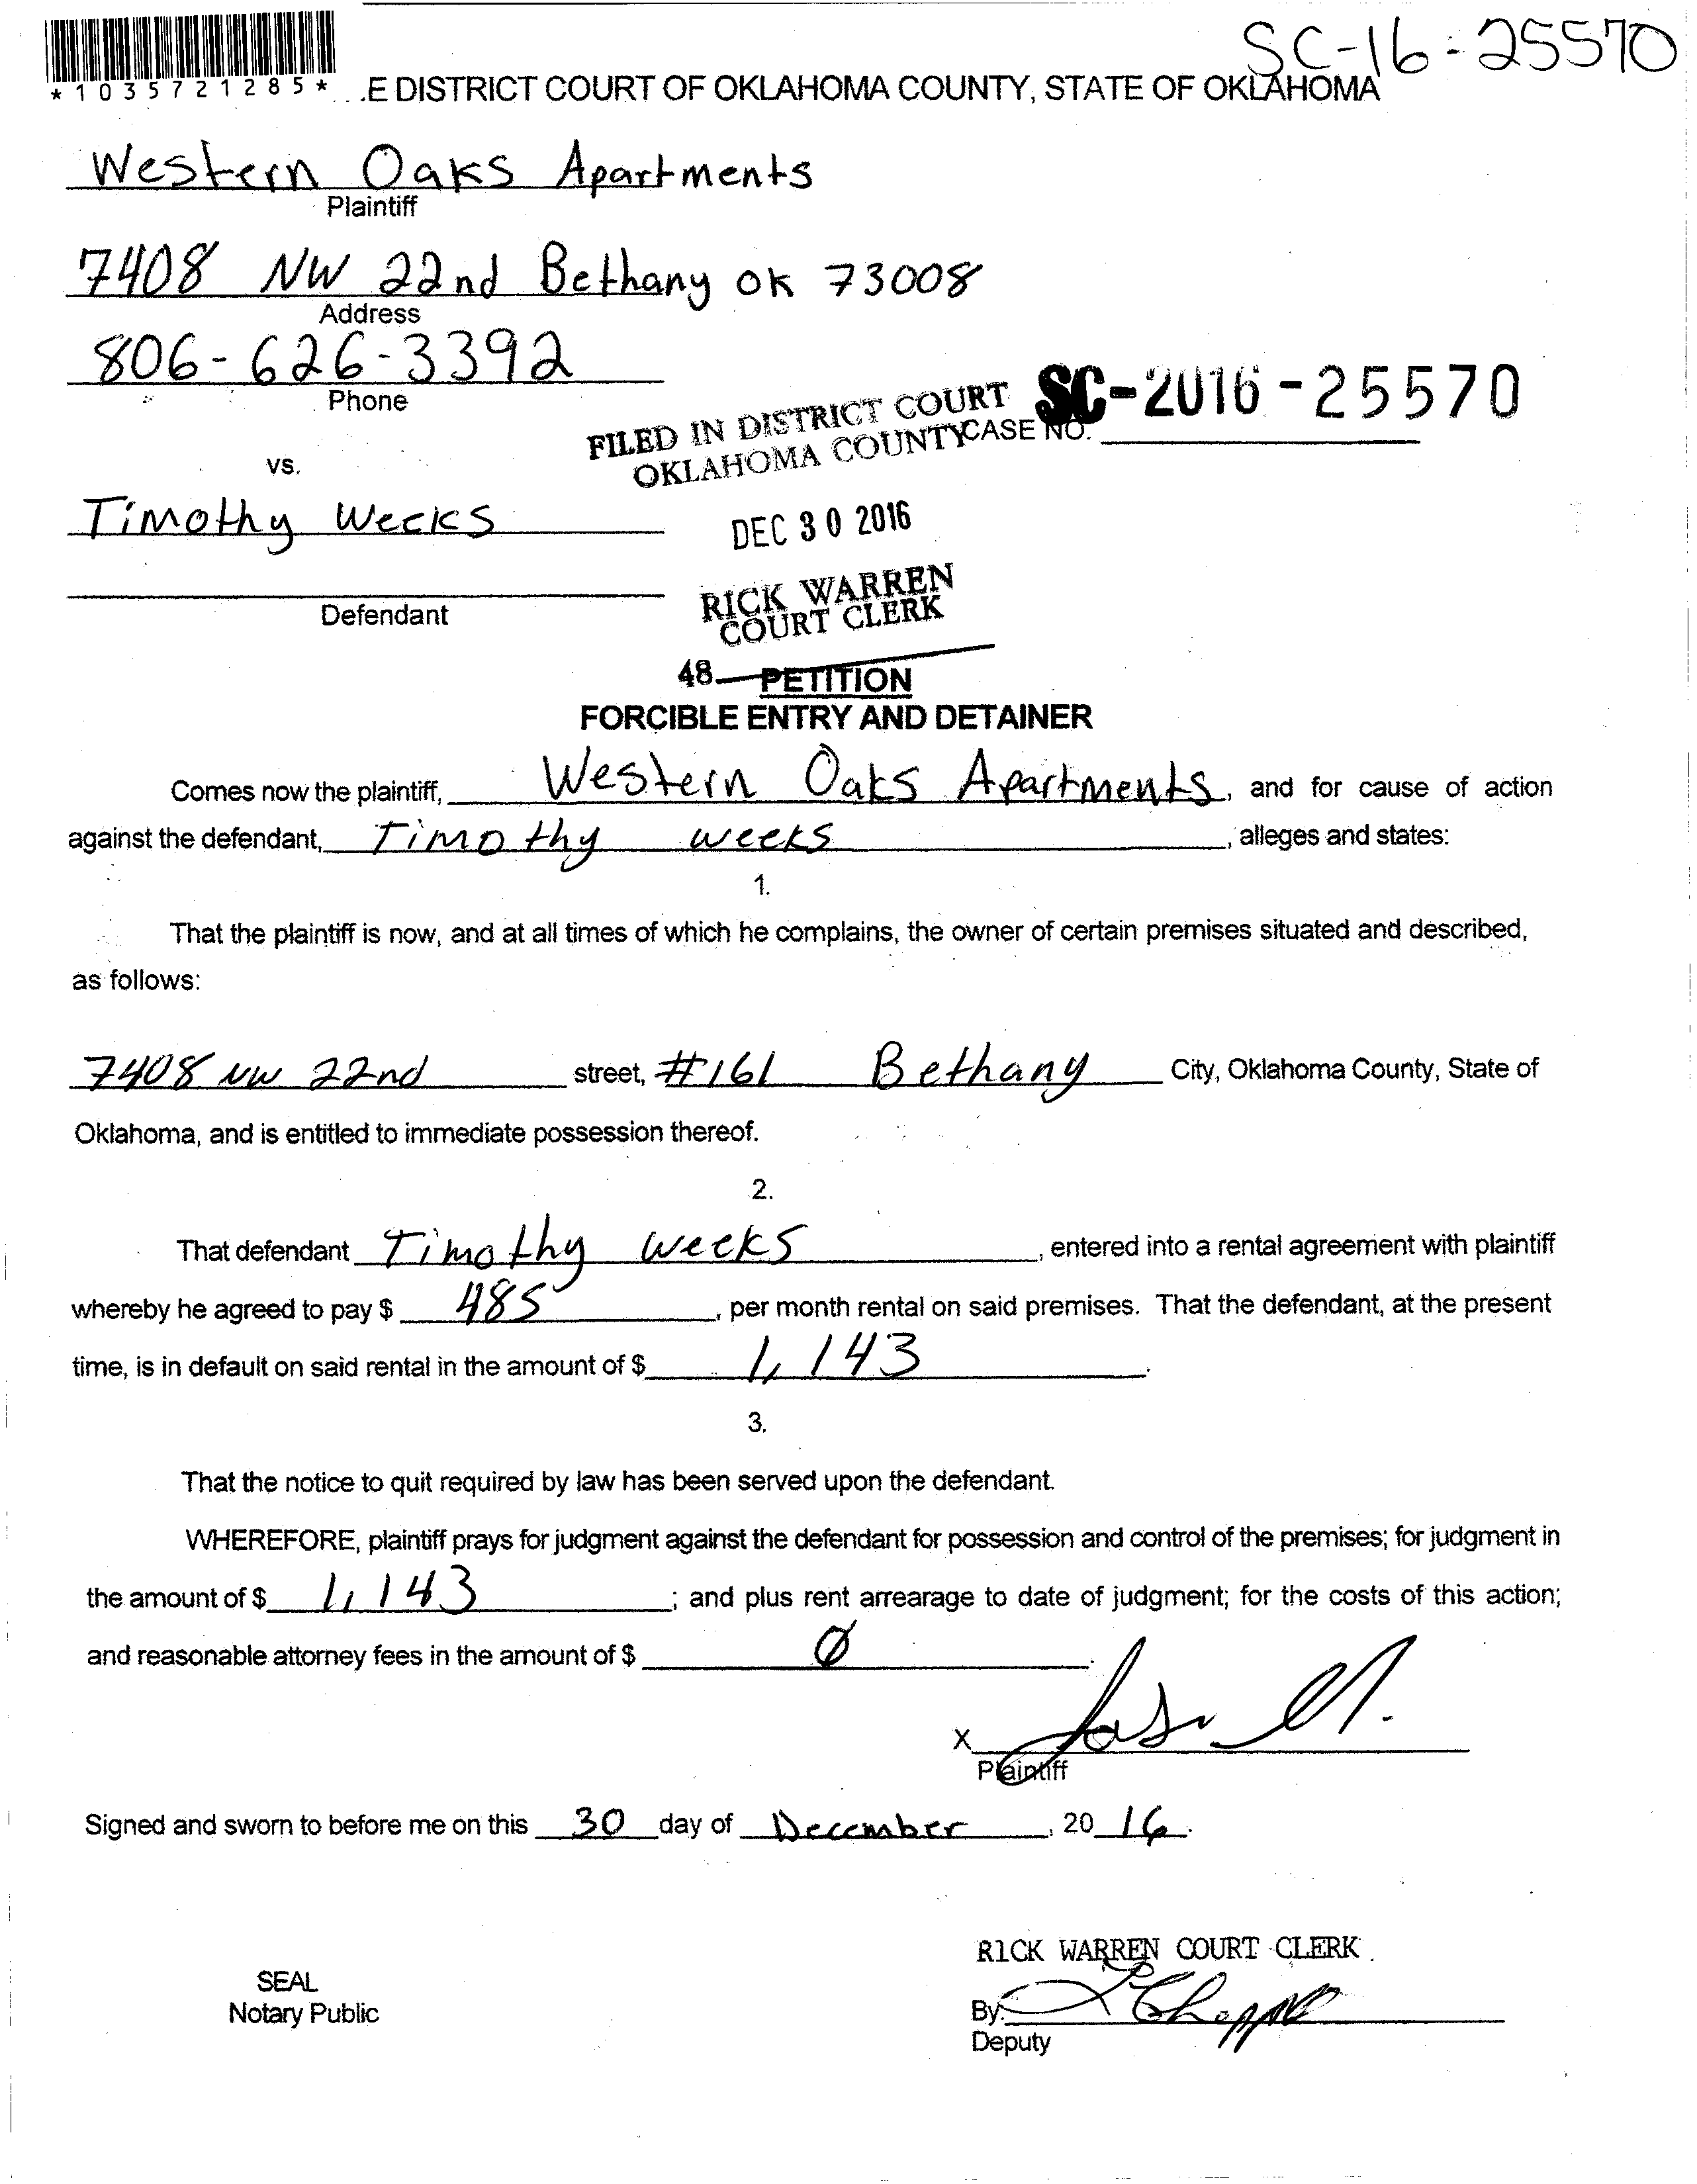 SC-16-25570
*1035721285* .E DISTRICT COURT OF OKLAHOMA COUNTY, STATE OF OKLAHOMA
Western Oaks Apartments
Plaintiff
7408 NW 22nd Bethany OK 73008
Address
806-626-3392
Phone
FILED IN DISTRICT COURT
OKLAHOMA COUNTY
CASE NO. SC-2016-25570
vs.
Timothy Weeks
DEC 30 2016
Defendant
RICK WARREN
COURT CLERK
48
PETITION
FORCIBLE ENTRY AND DETAINER
Comes now the plaintiff, Western Oaks Apartments, and for cause of action
against the defendant, Timothy weeks, alleges and states:
1.
That the plaintiff is now, and at all times of which he complains, the owner of certain premises situated and described,
as follows:
7408 NW 22nd street, #161 Bethany City, Oklahoma County, State of
Oklahoma, and is entitled to immediate possession thereof.
2.
That defendant Timothy weeks, entered into a rental agreement with plaintiff
whereby he agreed to pay $ 485, per month rental on said premises. That the defendant, at the present
time, is in default on said rental in the amount of $ 1,143.
3.
That the notice to quit required by law has been served upon the defendant.
WHEREFORE, plaintiff prays for judgment against the defendant for possession and control of the premises; for judgment in
the amount of $ 1,143; and plus rent arrearage to date of judgment; for the costs of this action;
and reasonable attorney fees in the amount of $ Ø.
X
Plaintiff
Signed and sworn to before me on this 30 day of December, 2016.
RICK WARREN COURT CLERK
SEAL
Notary Public
By:
Deputy